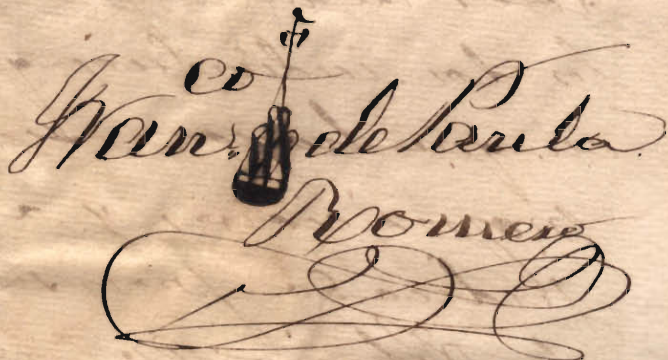 Fran.co de Paula
Romero